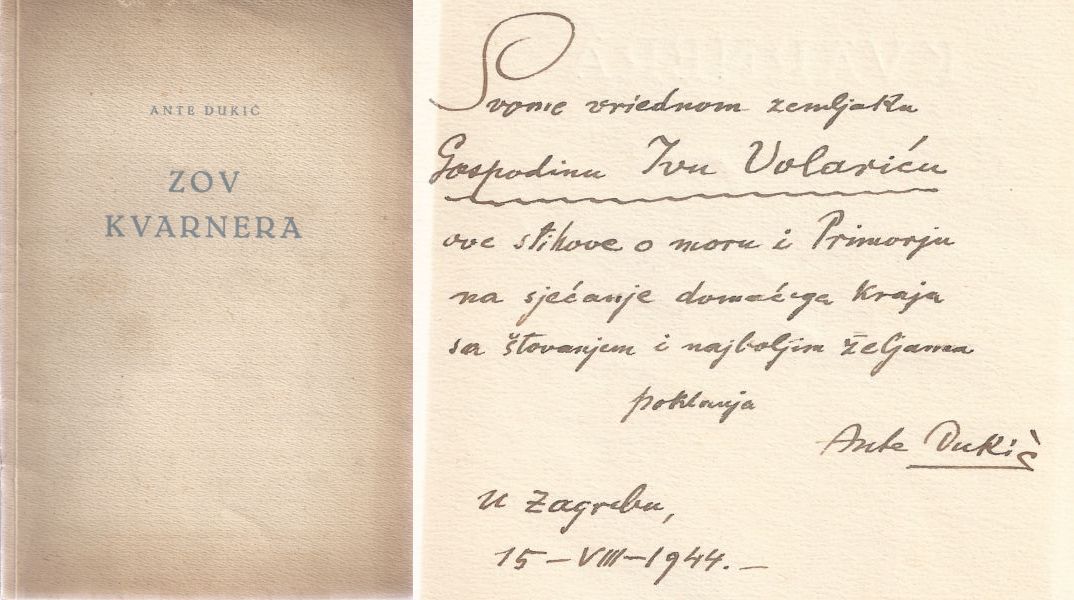 ANTE DUKIĆ
ZOV
KVARNERA
Svome vriednom zemljaku
Gospodinu Ivu Volariću
ove stihove o moru i Primorju
na sjećanje domaćega kraja
sa štovanjem i najboljim željama
poklanja
Ante Dukić
U Zagrebu,
15-VIII-1944.-